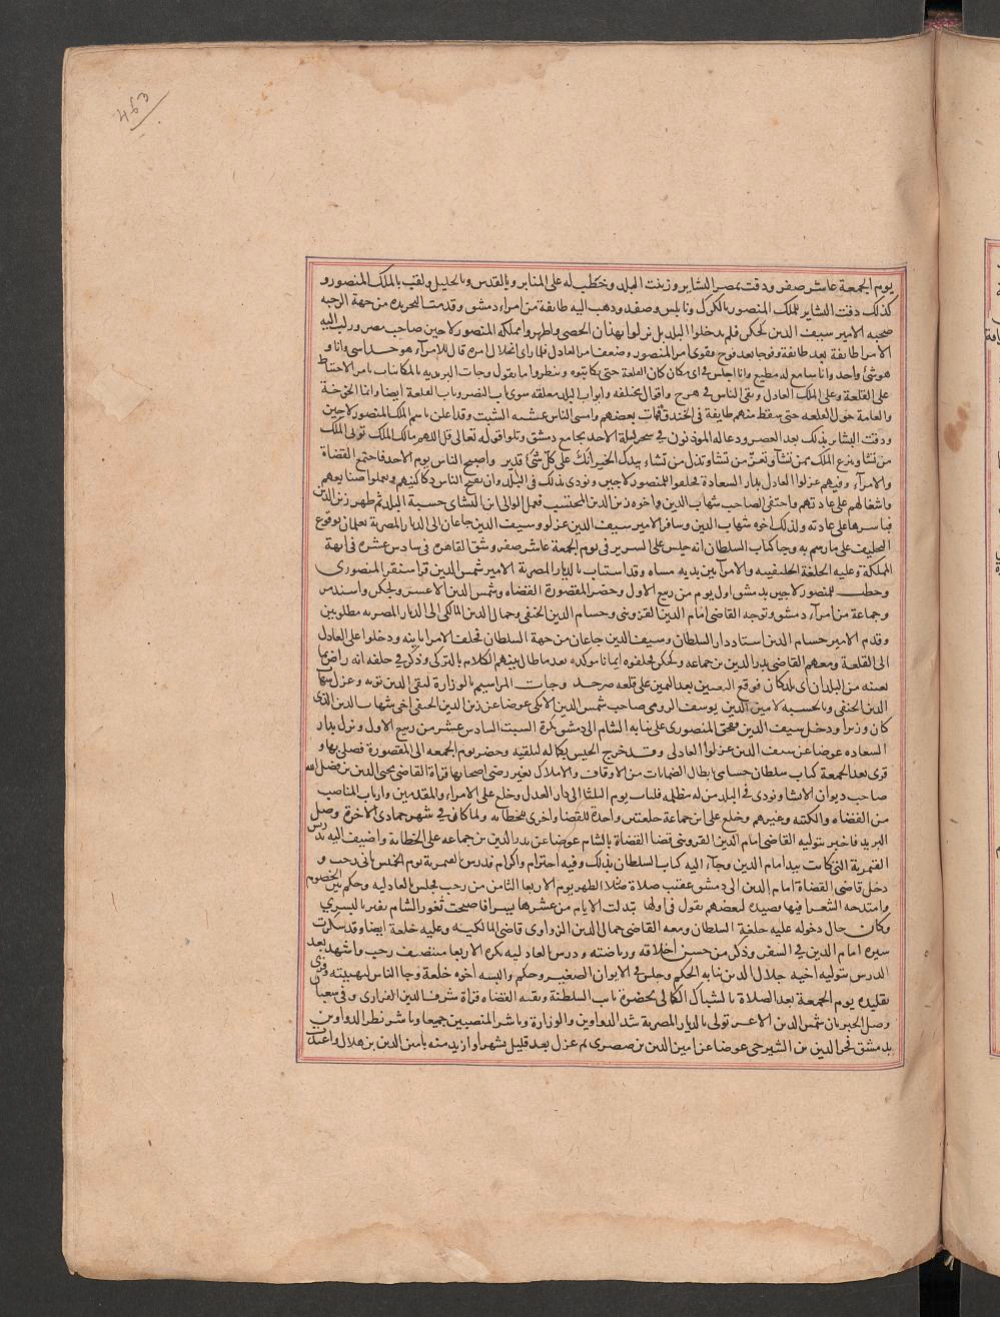 463
يوم الجمعة عاشر صفر ودقت بمصر البشاير وزينت البلد وخطب له على المنابر وبالقدس وبالخليل ولقب بالملك المنصور و
كذلك دقت البشاير للملك المنصور بالكرك ونابلس وصفد وذهب اليه طايفة من امراء دمشق وقدمت التجريدة من جهة الرحبة
صحبه الامير سيف الدين كجكن فلم يدخلوا البلد بل نزلوا بميدان الحصى واظهروا مملكة المنصور لاجين صاحب مصر وركب اليه
الامرا طايفة بعد طايفة وفوجا بعد فوج فقوى امر المنصور وضعف امر العادل فلما راى انحلال امره قال للامراء هو خشداشي وانا و
هو شئ واحد وانا سامع له مطيع وانا اجلس في اى مكان كان القلعة حتى تكاتبوه وتنظروا ما يقول وجات البريديه بالمكاتبات بامر الاحتياط
على القلعة وعلى الملك العادل وبقى الناس في هرج واقوال مختلفه وابواب البلد مغلقه سوى باب النصر وباب القلعة ايضا وانما الخوخة
والعامة حول القلعه حتى سقط منهم طايفة في الخندق فمات بعضهم وامسى الناس عشية السبت وقد اعلن باسم الملك المنصور لاجين
ودقت البشاير بذلك بعد العصر ودعا له الموذنون في سحر ليلة الاحد بجامع دمشق وتلوا قوله تعالى قل اللهم مالك الملك توتى الملك
من تشا وتنزع الملك ممن تشاء وتعز من تشا وتذل من تشاء بيدك الخير انك على كل شئ قدير واصبح الناس يوم الاحد فاجتمع القضاة
والامراء وفيهم غزلوا العادل بدار السعادة فحلفوا للمنصور لاجين ونودى بذلك في البلد وان يفتح الناس دكاكينهم ويعملوا صنايعهم
واشغالهم على عادتهم واختفى الصاحب شهاب الدين واخوه زين الدين المحتسب فعمل الوالى ابن النشابي حسبة البلد ثم ظهر زين الدين
فباشرها على عادته وكذلك اخوه شهاب الدين وسافر الامير سيف الدين غزلو وسيف الدين جاعان الى الديار المصرية يعلمان بوقوع
التحليف على ما رسم به وجا كتاب السلطان انه جلس على السرير في يوم الجمعة عاشر صفر وشق القاهرة في سادس عشره في ابهة
المملكة وعليه الخلعة الخليفيه والامرا بين يديه مشاه وقد استناب بالديار المصرية الامير شمس الدين قراسنقر المنصورى
وخطب للمنصور لاجين بدمشق اول يوم من ربيع الاول وحضر المقصورة القضاه وشمس الدين الاعسر وكجكن واسندمر
وجماعة من امراء دمشق وتوجه القاضى امام الدين القزوينى وحسام الدين الحنفى وجمال الدين المالكى الى الديار المصريه مطلوبين
وقدم الامير حسام الدين استاددار السلطان وسيف الدين جاعان من جهة السلطان فحلف الامرا ثانيه ودخلوا على العادل
الى القلعة ومعهم القاضى بدر الدين بن جماعه وكجكن فحلفوه ايمانا موكده بعد ما طال بينهم الكلام بالتركى وذكر في حلفه انه راض بما
يعينه من البلدان اى بلد كان فوقع التعيين بعد اليمين على قلعه صرخد وجات المراسيم بالوزارة لتقى الدين توبه وعزل شهاب
الدين الحنفى وبالحسبه لامين الدين يوسف الرومى صاحب شمس الدين الايكى عوضا عن زين الدين الحنفى اخى شهاب الدين الذى
كان وزيرا ودخل سيف الدين قبجق المنصورى على نيابه الشام الى دمشق بكرة السبت السادس عشر من ربيع الاول ونزل بدار
السعاده عوضا عن سيف الدين غزلوا العادلى وقد خرج الجيش بكماله لتلقيه وحضر يوم الجمعه الى المقصورة فصلى بها و
قرى بعد الجمعة كتاب سلطان حسامى بابطال الضمانات من الاوقاف والاملاك بغير رضى اصحابها قراه القاضى محيى الدين بن فضل الله
صاحب ديوان الانشا ونودى في البلد من له مظلمه فليات يوم الثلثا الى دار العدل وخلع على الامراء والمقدمين وارباب المناصب
من القضاه والكتبه وغيرهم وخلع على ابن جماعة خلعتين واحدة للقضا واخرى للخطابه ولما كان في شهر جمادى الاخرة وصل
البريد فاخبر بتوليه القاضى امام الدين القزوينى قضا القضاة بالشام عوضا عن بدر الدين بن جماعه على الخطابة واضيف اليه تدريس
القيمرية التى كانت بيد امام الدين وجاء اليه كتاب السلطان بذلك وفيه احترام واكرام فدرس بالقيمرية يوم الخميس ثانى رجب و
دخل قاضى القضاة امام الدين الى دمشق عقيب صلاة الظهر يوم الاربعا الثامن من رجب فجلس بالعادليه وحكم بين الخصوم
وامتدحه الشعرا فيها قصيده لبعضهم يقول في اولها تبدلت الايام من عشرها يسرا فاضحت ثغور الشام تفتر بالبشرى
وكان حال دخوله عليه خلعة السلطان ومعه القاضى جمال الدين الزواوى قاضى المالكيه وعليه خلعة ايضا وقد شكرت
سيره امام الدين في السفر وذكر من حسن اخلاقه ورياضته ودرس بالعادليه بكره الاربعا منتصف رجب واشهد بعد
الدرس بتوليه اخيه جلال الدين نيابه الحكم وجلس في الايوان الصغير وحكم والبسه اخوه خلعة وجا الناس لتهنيته وقرى
تقليده يوم الجمعة بعد الصلاة بالشباك الكمالى بحضرة نايب السلطنة وبقية القضاه قراه شرف الدين الفزارى وفى شعبان
وصل الخبر بان شمس الدين الاعسر تولى بالديار المصرية شد الدواوين والوزارة وباشر المنصبين جميعا وباشر نظر الدواوين
بدمشق فخر الدين بن الشيرجى عوضا عن امين الدين بن صصرى ثم عزل بعد قليل بشهر او ازيد منه بامين الدين بن هلال واعيدت